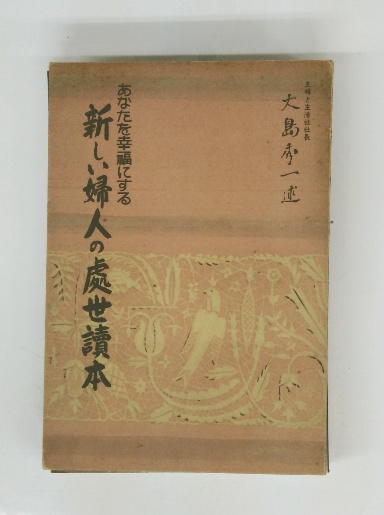 主婦と生活社社長
大島秀一述
あなたを幸福にする
新しい婦人の處世讀本